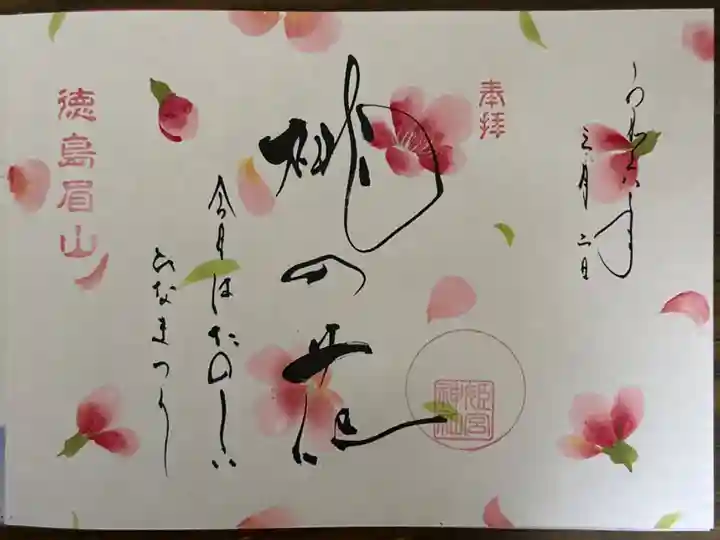 奉拝
令和六年
三月二日
桃の花
今日はたのしい
ひなまつり
徳島眉山
姫宮
神社